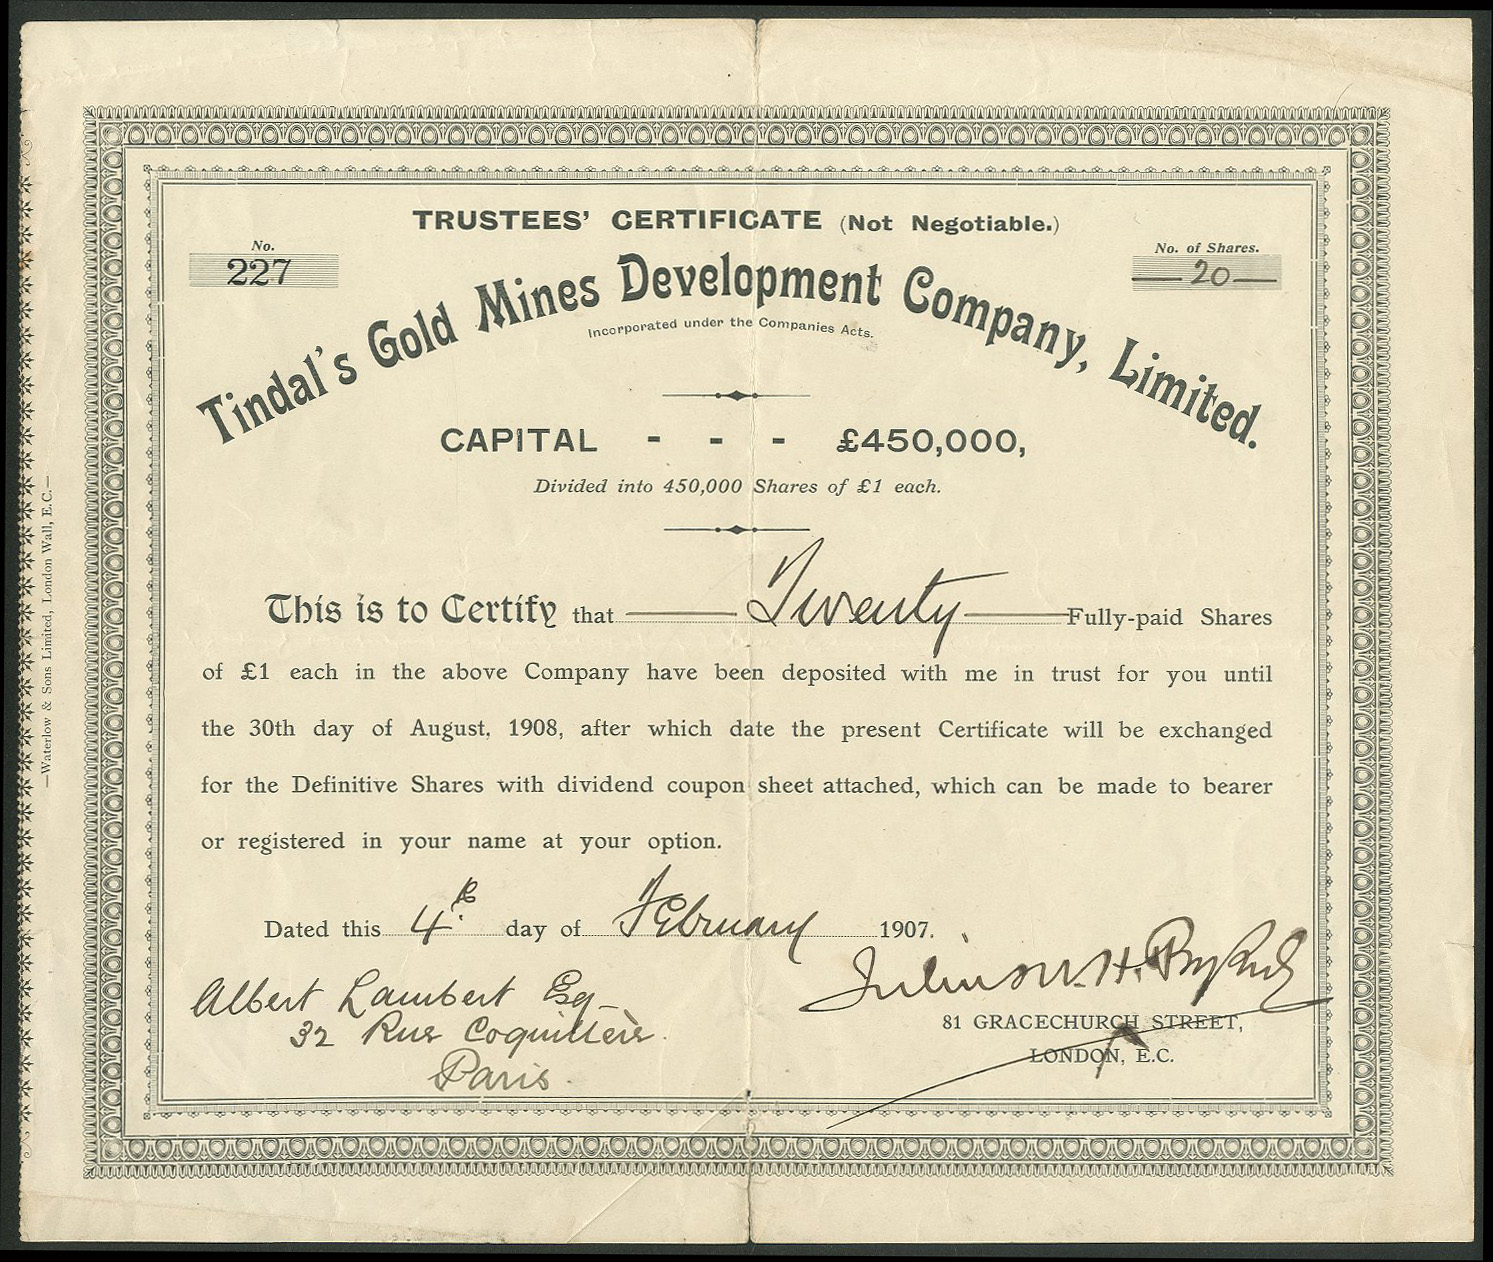 TRUSTEES' CERTIFICATE (Not Negotiable.)
No.
227
No. of Shares.
20
Tindal's Gold Mines Development Company, Limited.
Incorporated under the Companies Acts.
CAPITAL - - - £450,000,
Divided into 450,000 Shares of £1 each.
This is to Certify that Twenty Fully-paid Shares
of £1 each in the above Company have been deposited with me in trust for you until
the 30th day of August, 1908, after which date the present Certificate will be exchanged
for the Definitive Shares with dividend coupon sheet attached, which can be made to bearer
or registered in your name at your option.
Dated this 4th day of February 1907.
Albert Lambert Esq
32 Rue Coquillère
Paris.
Julius H.
81 GRACECHURCH STREET,
LONDON, E.C.
—Waterlow & Sons Limited, London Wall, E.C.—